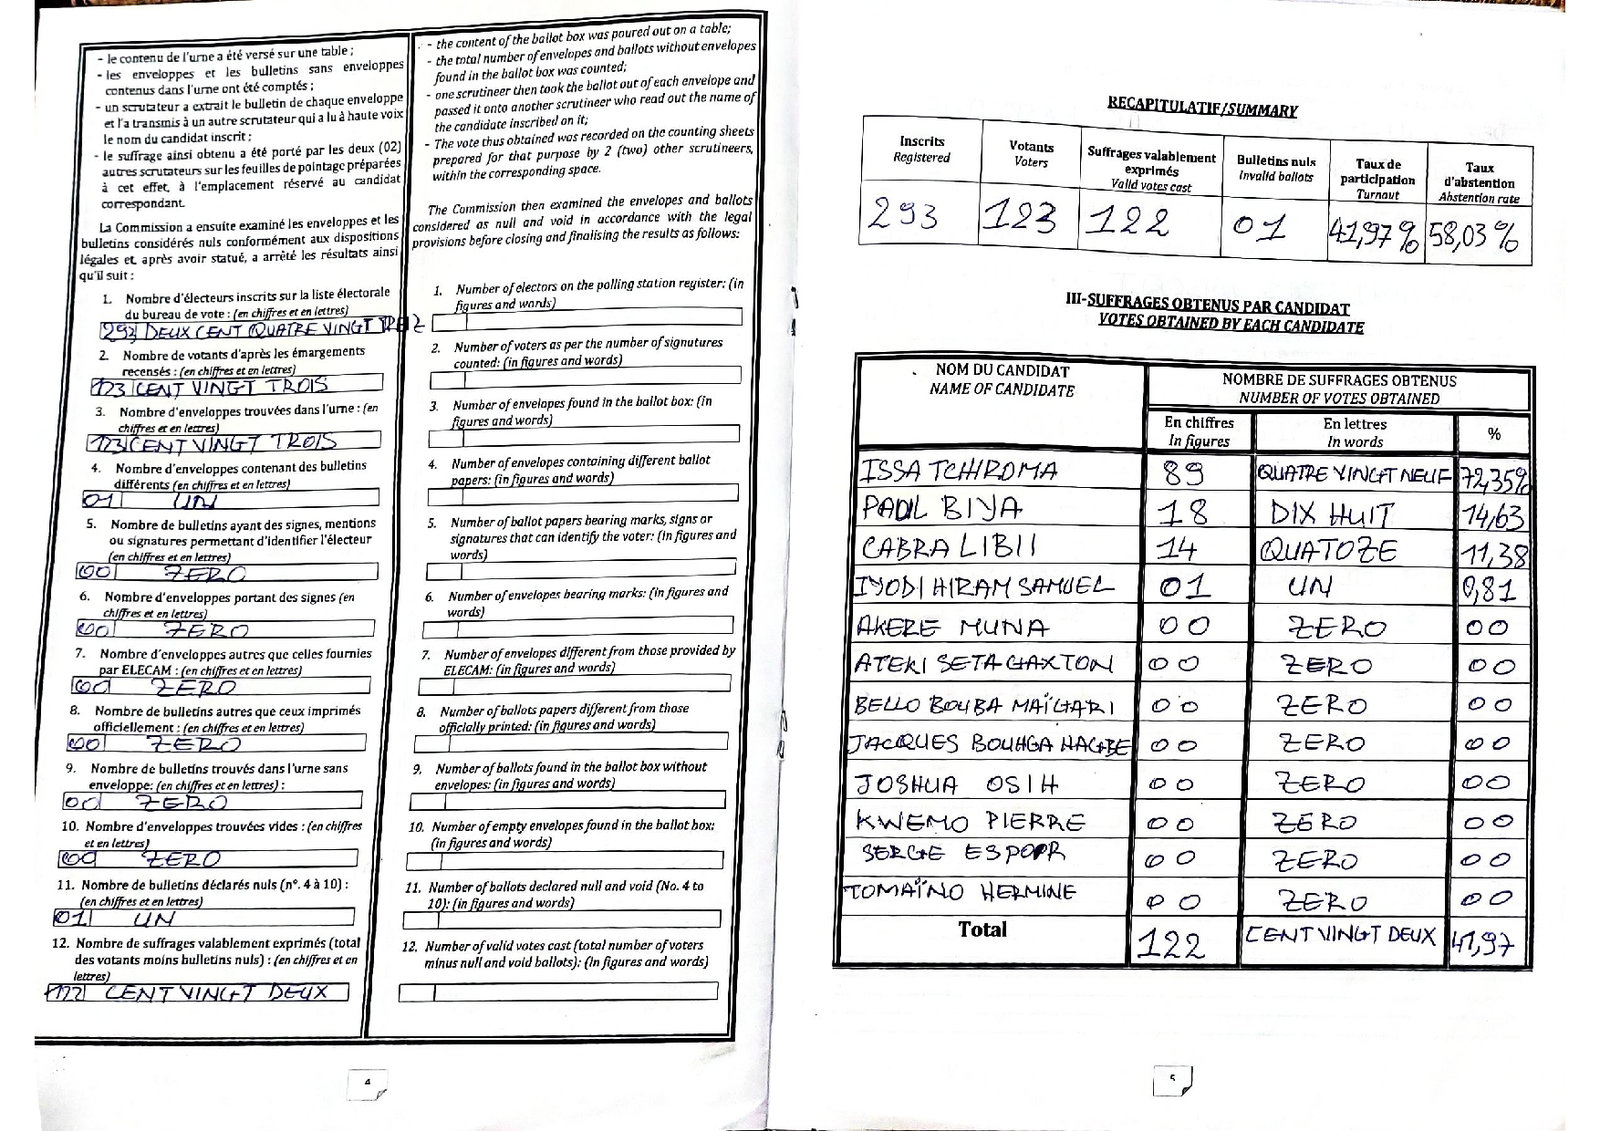 - le contenu de l'urne a été versé sur une table ;
- les enveloppes et les bulletins sans enveloppes
contenus dans l'urne ont été comptés ;
- un scrutateur a extrait le bulletin de chaque enveloppe
et l'a transmis à un autre scrutateur qui a lu à haute voix
le nom du candidat inscrit ;
- le suffrage ainsi obtenu a été porté par les deux (02)
autres scrutateurs sur les feuilles de pointage préparées
à cet effet, à l'emplacement réservé au candidat
correspondant.
La Commission a ensuite examiné les enveloppes et les
bulletins considérés nuls conformément aux dispositions
légales et, après avoir statué, a arrêté les résultats ainsi
qu'il suit :
1. Nombre d'électeurs inscrits sur la liste électorale
du bureau de vote : (en chiffres et en lettres)
293 DEUX CENT QUATRE VINGT TREIZ
2. Nombre de votants d'après les émargements
recensés : (en chiffres et en lettres)
123 CENT VINGT TROIS
3. Nombre d'enveloppes trouvées dans l'urne : (en
chiffres et en lettres)
123 CENT VINGT TROIS
4. Nombre d'enveloppes contenant des bulletins
différents (en chiffres et en lettres)
01 UN
5. Nombre de bulletins ayant des signes, mentions
ou signatures permettant d'identifier l'électeur
(en chiffres et en lettres)
00 ZERO
6. Nombre d'enveloppes portant des signes (en
chiffres et en lettres)
00 ZERO
7. Nombre d'enveloppes autres que celles fournies
par ELECAM : (en chiffres et en lettres)
00 ZERO
8. Nombre de bulletins autres que ceux imprimés
officiellement : (en chiffres et en lettres)
00 ZERO
9. Nombre de bulletins trouvés dans l'urne sans
enveloppe: (en chiffres et en lettres) :
00 ZERO
10. Nombre d'enveloppes trouvées vides : (en chiffres
et en lettres)
00 ZERO
11. Nombre de bulletins déclarés nuls (n°. 4 à 10) :
(en chiffres et en lettres)
01 UN
12. Nombre de suffrages valablement exprimés (total
des votants moins bulletins nuls) : (en chiffres et en
lettres)
122 CENT VINGT DEUX
- the content of the ballot box was poured out on a table;
- the total number of envelopes and ballots without envelopes
found in the ballot box was counted;
- one scrutineer then took the ballot out of each envelope and
passed it onto another scrutineer who read out the name of
the candidate inscribed on it;
- The vote thus obtained was recorded on the counting sheets
prepared for that purpose by 2 (two) other scrutineers,
within the corresponding space.
The Commission then examined the envelopes and ballots
considered as null and void in accordance with the legal
provisions before closing and finalising the results as follows:
1. Number of electors on the polling station register: (in
figures and words)
2. Number of voters as per the number of signutures
counted: (in figures and words)
3. Number of envelopes found in the ballot box: (in
figures and words)
4. Number of envelopes containing different ballot
papers: (in figures and words)
5. Number of ballot papers bearing marks, signs or
signatures that can identify the voter: (in figures and
words)
6. Number of envelopes bearing marks: (in figures and
words)
7. Number of envelopes different from those provided by
ELECAM: (in figures and words)
8. Number of ballots papers different from those
officially printed: (in figures and words)
9. Number of ballots found in the ballot box without
envelopes: (in figures and words)
10. Number of empty envelopes found in the ballot box:
(in figures and words)
11. Number of ballots declared null and void (No. 4 to
10): (in figures and words)
12. Number of valid votes cast (total number of voters
minus null and void ballots): (in figures and words)
4
RECAPITULATIF/SUMMARY
Inscrits Registered Votants Voters Suffrages valablement exprimés Valid votes cast Bulletins nuls Invalid ballots Taux de participation Turnout Taux d'abstention Abstention rate
293 123 122 01 41,97% 58,03%
III-SUFFRAGES OBTENUS PAR CANDIDAT
VOTES OBTAINED BY EACH CANDIDATE
NOM DU CANDIDAT NOMBRE DE SUFFRAGES OBTENUS
NAME OF CANDIDATE NUMBER OF VOTES OBTAINED
En chiffres En lettres %
In figures In words
ISSA TCHIROMA 89 QUATRE VINGT NEUF 72,35%
PAUL BIYA 18 DIX HUIT 14,63
CABRA LIBII 14 QUATOZE 11,38
IYODI HIRAM SAMUEL 01 UN 0,81
AKERE MUNA 00 ZERO 00
ATEKI SETA CAXTON 00 ZERO 00
BELLO BOUBA MAÏGARI 00 ZERO 00
JACQUES BOUHGA HAGBE 00 ZERO 00
JOSHUA OSIH 00 ZERO 00
KWEMO PIERRE 00 ZERO 00
SERGE ESPOPR 00 ZERO 00
TOMAÏNO HERMINE 00 ZERO 00
Total 122 CENT VINGT DEUX 41,97
5